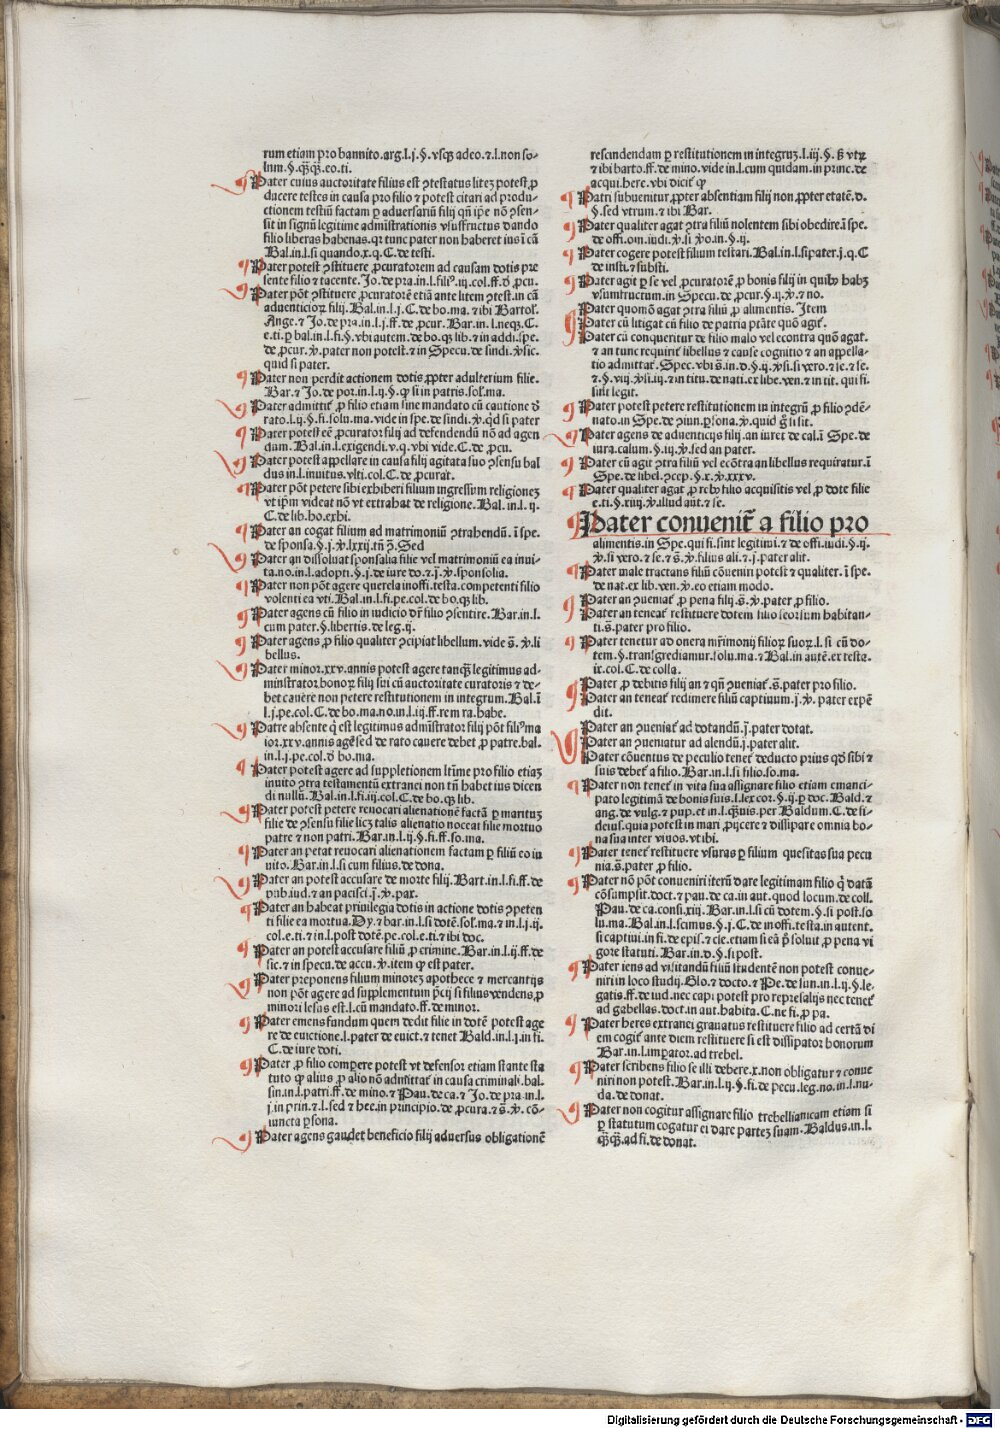 rum etiam pro bannito.arg.l.j.§.vsqꝫ adeo.⁊.l.non so-
lum.§.q̄ꝫq̄ꝫ.eo.ti.
Pater cuius auctoritate filius est ꝯtestatus liteꝫ potest ꝓ
ducere testes in causa pro filio ⁊ potest citari ad produ-
ctionem testiū factam ꝑ aduersariū filij qn̄ ip̄e nō ꝯsen-
sit in signū legitime admīstrationis vsuffructus dando
filio liberas habenas.qꝛ tunc pater non haberet ius ī cā
Bal.in.l.si quando.x.q.C.de testi.
Pater potest ꝯstituere ꝓcuratorem ad causam dotis pre
sente filio ⁊ tacente.Jo.de pra.in.l.filiꝰ.iij.col.ff.ꝺ ꝓcu.
Pater pōt ꝯstituere ꝓcuratorē etiā ante litem ꝯtest.in cā
aduenticioꝝ filij.Bal.in.l.j.C.de bo.ma.⁊ ibi Bartol.
Ange.⁊ Jo.de pra.in.l.j.ff.de ꝓcur.Bar.in.l.neqꝫ.C.
e.ti.ꝑ bal.in.l.fi.§.vbi autem.de bo.q̄ lib.⁊ in addi.spe.
de ꝓcur.ꝟ.pater non potest.⁊ in Specu.de sindi.ꝟsic.
quid si pater.
Pater non perdit actionem dotis ꝓpter adulterium filie.
Bar.⁊ Jo.de por.in.l.ij.§.ꝙ si in patris.sol.ma.
Pater admittit̄ ꝓ filio etiam sine mandato cū cautione ꝺ
rato.l.ij.§.fi.solu.ma.vide in spe.de sindi.ꝟ.qd si pater
Pater potest eē ꝓcurator filij ad defendendū nō ad agen
dum.Bal.in.l.exigendi.v.q.vbi vide.C.de ꝓcu.
Pater potest appellare in causa filij agitata suo ꝯsensu bal
dus in.l.inuitus.vlti.col.C.de ꝓcurat.
Pater pōt petere sibi exhiberi filium ingressum religioneꝫ
vt ip̄m videat nō vt extrahat de religione.Bal.in.l.ij.
C.de lib.ho.exbi.
Pater an cogat filium ad matrimoniū ꝯtrahendū.ī spe.
de sponsa.§.j.ꝟ.lxxij.tn̄ ꝭ.Sed
Pater an dissoluat sponsalia filie vel matrimoniū ea inui-
ta.no.in.l.adopti.§.j.de iure do.⁊.j.ꝟ.sponsolia.
Pater non pōt agere querela inoffi.testa.competenti filio
volenti ea vti.Bal.in.l.fi.pe.col.de bo.q̄ lib.
Pater agens cū filio in iudicio dr̄ filio ꝯsentire.Bar.in.l.
cum pater.§.libertis.de leg.ij.
Pater agens ꝓ filio qualiter ꝯcipiat libellum.vide s̄.ꝟ.li
bellus.
Pater minor.xxv.annis potest agere tanqꝫ legitimus ad-
ministrator bonoꝝ filij sui cū auctoritate curatoris ⁊ de-
bet cauere non petere restitutionem in integrum.Bal.ī
l.j.pe.col.C.de bo.ma.no.in.l.iij.ff.rem ra.habe.
Patre absente q̄ est legitimus admīstrator filij pōt filiꝰ ma
ior.xxv.annis agē sed de rato cauere debet ꝓ patre.bal.
in.l.j.pe.col.ꝺ bo.ma.
Pater potest agere ad suppletionem ltīme pro filio etiaꝫ
inuito ꝯtra testamentū extranei non tn̄ habet ius dicen
di nullū.Bal.in.l.fi.iij.col.C.de bo.q̄ lib.
Pater potest petere reuocari alienationē factā ꝑ maritus
filie de ꝯsensu filie licꝫ talis alienatio noceat filie mortuo
patre ⁊ non patri.Bar.in.l.ij.§.fi.ff.so.ma.
Pater an petat reuocari alienationem factam ꝑ filiū eo in
uito.Bar.in.l.si cum filius.de dona.
Pater an potest accusare de morte filij.Bart.in.l.fi.ff.de
pub.iud.⁊ an pacisci.j.ꝟ.pax.
Pater an habeat priuilegia dotis in actione dotis ꝯpeten
ti filie ea mortua.Dy.⁊ bar.in.l.si dotē.sol.ma.⁊ in.l.j.ij.
col.e.ti.⁊ in.l.post dotē.pe.col.e.ti.⁊ ibi doc.
Pater an potest accusare filiū ꝓ crimine.Bar.in.l.ij.ff.de
sic.⁊ in specu.de accu.ꝟ.item ꝙ est pater.
Pater preponens filium minoreꝫ apothece ⁊ mercantijs
non pōt agere ad supplementum p̄cij si filius vendens ꝓ
minori lesus est.l.cū mandato.ff.de minor.
Pater emens fundum quem dedit filie in dotē potest age
re de euictione.l.pater de euict.⁊ tenet Bald.in.l.j.in fi.
C.de iure doti.
Pater ꝓ filio comꝑere potest vt defensor etiam stante sta
tuto ꝙ alius ꝓ alio nō admittat̄ in causa criminali.bal.
sin.in.l.patri.ff.de mino.⁊ Pau.de ca.⁊ Jo.de pra.in.l.
j.in prin.⁊.l.sed ⁊ hec.in principio.de ꝓcura.⁊ s̄.ꝟ.cō-
iuncta ꝑsona.
Pater agens gaudet beneficio filij aduersus obligationē
rescindendam ꝑ restitutionem in integruꝫ.l.iij.§.ß vtꝝ
⁊ ibi barto.ff.de mino.vide in.l.cum quidam.in princ.de
acqui.here.vbi dicit̄ ꝙ
Patri subuenitur ꝓpter absentiam filij non ꝓpter etatē.ꝺ.
§.sed vtrum.⁊ ibi Bar.
Pater qualiter agat ꝯtra filiū nolentem sibi obedire.ī spe.
de offi.om.iudi.ꝟ.si ꝟo.in.§.ij.
Pater cogere potest filium testari.Bal.in.l.si pater.j.q.C
de insti.⁊ substi.
Pater agit ꝑ se vel ꝓcuratorē ꝓ bonis filij in quibꝰ habꝫ
vsumfructum.in Specu.de ꝓcur.§.ij.ꝟ.⁊ no.
Pater quomō agat ꝯtra filiū ꝓ alimentis.Item
Pater cū litigat cū filio de patria ptāte quō agit̄.
Pater cū conqueritur de filio malo vel econtra quō agat.
⁊ an tunc requirit̄ libellus ⁊ cause cognitio ⁊ an appella-
tio admittat̄.Spec.vbi s̄.in.ꝺ.§.ij.ꝟsi.si vero.⁊ se.⁊ se.
⁊.§.viij.ꝟsi.iij.⁊ in titu.de nati.ex libe.ven.⁊ in tit.qui fi.
sint legit.
Pater potest petere restitutionem in integrū ꝓ filio ꝯdē-
nato.in Spe.de ꝯiun.ꝑsona.ꝟ.quid ḡ si sit.
Pater agens de aduenticijs filij.an iuret de cal.ī Spe.de
iura.calum.§.iij.ꝟ.sed an pater.
Pater cū agit ꝯtra filiū vel ecōtra an libellus requiratur.ī
Spe.de libel.ꝯcep.§.x.ꝟ.xxxv.
Pater qualiter agat ꝓ rebꝰ filio acquisitis vel ꝓ dote filie
e.ti.§.xiij.ꝟ.illud aūt.⁊ se.
Pater conuenit̄ a filio pro
alimentis.in Spe.qui fi.sint legitimi.⁊ de offi.iudi.§.ij.
ꝟ.si vero.⁊ se.⁊ s̄.ꝟ.filius ali.⁊.j.pater alit.
Pater male tractans filiū cōuenin potest ⁊ qualiter.ī spe.
de nat.ex lib.ven.ꝟ.eo etiam modo.
Pater an ꝯueniat̄ ꝓ pena filij.s̄.ꝟ.pater ꝓ filio.
Pater an teneat̄ restituere dotem filio seorsum habitan-
ti.s̄.pater pro filio.
Pater tenetur ad onera mr̄imonij filioꝝ suoꝝ.l.si cū do-
tem.§.transgrediamur.solu.ma.⁊ Bal.in autē.ex testa.
ix.col.C.de colla.
Pater ꝓ debitis filij an ⁊ qn̄ ꝯueniat̄.s̄.pater pro filio.
Pater an teneat̄ redimere filiū captiuum.j.ꝟ.pater expē
dit.
Pater an ꝯueniat̄ ad dotandū.j.pater dotat.
Pater an ꝯueniatur ad alendū.j.pater alit.
Pater cōuentus de peculio tenet̄ deducto prius qd̄ sibi ⁊
suis debet̄ a filio.Bar.in.l.si filio.so.ma.
Pater non tenet̄ in vita sua assignare filio etiam emanci-
pato legitimā de bonis suis.l.lex cor.§.ij.ꝑ doc.Bald.⁊
ang.de vulg.⁊ pup.et in.l.q̄uis.per Baldum.C.de fi-
deius.quia potest in mari ꝓijcere ⁊ dissipare omnia bo-
na sua inter viuos.vt ibi.
Pater tenet̄ restituere vsuras ꝑ filium quesitas sua pecu
nia.s̄.pater ꝓ filio.
Pater nō pōt conueniri iterū dare legitimam filio q̄ datā
cōsumpsit.doct.⁊ pau.de ca.in aut.quod locum.de coll.
Pau.de ca.consi.xij.Bar.in.l.si cū dotem.§.si post.so
lu.ma.Bal.in.l.scimus.§.j.C.de inoffi.testa.in autent.
si captiui.in fi.de epis.⁊ cle.etiam si eā p̄ soluit ꝓ pena vi
gore statuti.Bar.in.ꝺ.§.si post.
Pater iens ad visitandū filiū studentē non potest conue-
niri in loco studij.Glo.⁊ docto.⁊ Pe.de lun.in.l.ij.§.le-
gatis.ff.de iud.nec capi potest pro represalijs nec tenet̄
ad gabellas.doct.in aut.habita.C.ne fi.ꝓ pa.
Pater heres extranei grauatus restituere filio ad certā di
em cogit̄ ante diem restituere si est dissipator bonorum
Bar.in.l.imꝑator.ad trebel.
Pater scribens filio se illi debere.x.non obligatur ⁊ conue
niri non potest.Bar.in.l.ij.§.fi.de pecu.leg.no.in.l.nu-
da.de donat.
Pater non cogitur assignare filio trebellianicam etiam si
ꝑ statutum cogatur ei dare parteꝫ suam.Baldus.in.l.
q̄ꝫq̄ꝫ.ad fi.de donat.
Digitalisierung gefördert durch die Deutsche Forschungsgemeinschaft - DFG